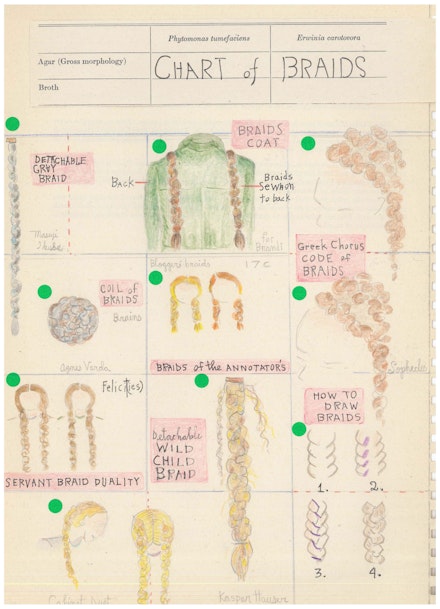 Phytomonas tumefaciens
Erwinia carotovora
Agar (Gross morphology)
CHART of BRAIDS
Broth
DETACHABLE
GRAY
BRAID
BRAIDS
COAT
Back
Braids
Sewn on
to back
For
Greek Chorus
CODE of
BRAIDS
Bloggers braids
17C
COIL of
BRAIDS
Brains
Agnes Varda
BRAIDS of the ANNOTATOR'S
Sophocles
Felicit(ies)
HOW TO
DRAW
BRAIDS
Detachable
WILD
CHILD
BRAID
SERVANT BRAID DUALITY
1.
2.
3.
4.
Kaspar Hauser